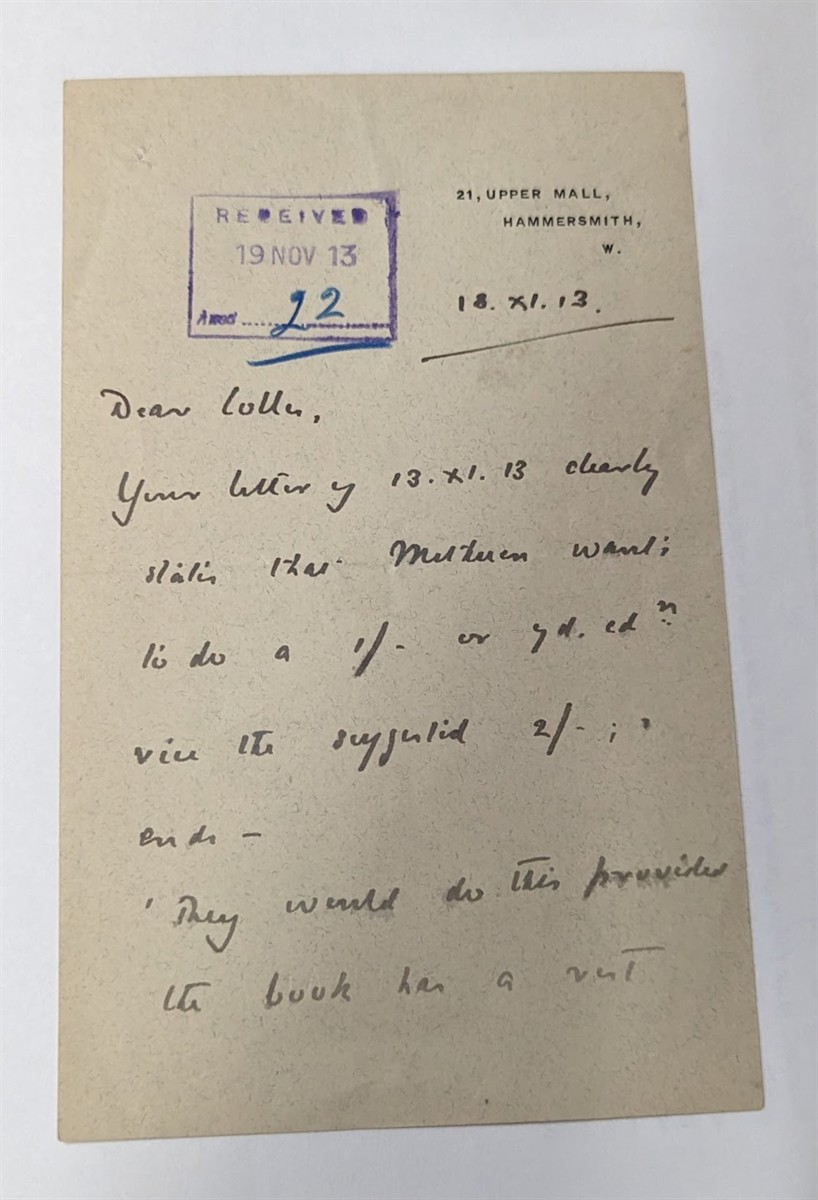 RECEIVED
19 NOV 13
Ansd ........ 22
21, UPPER MALL,
HAMMERSMITH,
W.
18. XI. 13.
Dear Colles,
Your letter of 13. XI. 13 clearly
states that Methuen wants
to do a 1/- or 7d. edn
vice the suggested 2/- ;
ends —
' They would do this provided
the book has a rest